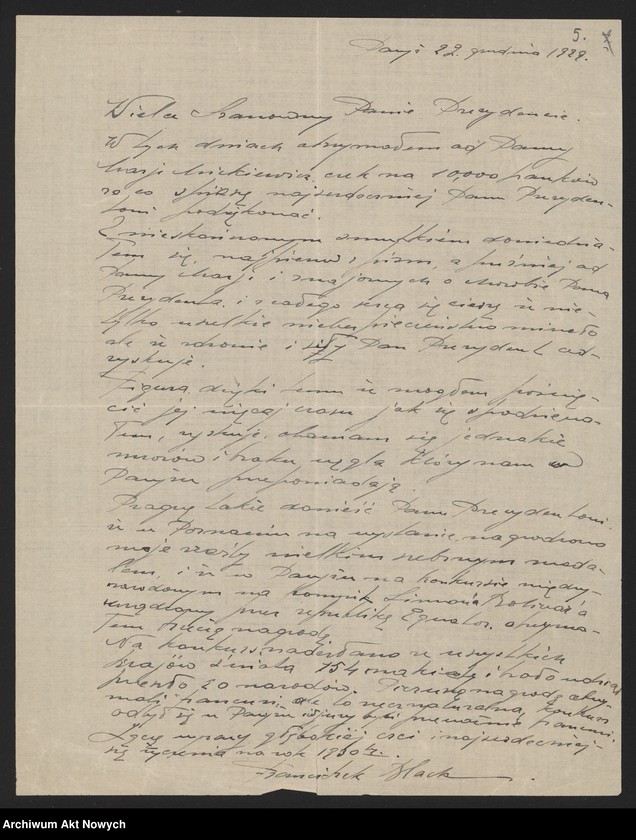 5.
Paryż 22. grudnia 1929.
Wielce Szanowny Panie Prezydencie.
W tych dniach otrzymałem od Panny
Marji Mickiewicz czek na 10,000 franków
za co spieszę najserdeczniej Panu Prezyden-
towi podziękować.
Z nieskończonym smutkiem dowiedzia-
łem się, najpierw z pism, a później od
Panny Marji i znajomych o chorobie Pana
Prezydenta, i z całego serca się cieszę że nie-
tylko wszelkie niebezpieczeństwo minęło
ale że zdrowie i siły Pan Prezydent od-
zyskuje.
Figura dzięki temu że mogłem poświę-
cić jej więcej czasu jak się spodziewa-
łem, zyskuje, obawiam się jednakże
mrozów i braku węgla który nam w
Paryżu przepowiadają.
Pragnę także donieść Panu Prezydentowi
że w Poznaniu na wystawie nagrodzono
moje rzeźby wielkim srebrnym meda-
lem, i że w Paryżu na konkursie między-
narodowym na pomnik Simona Bolivar'a
urządzony przez republikę Equator, otrzyma-
łem trzecią nagrodę.
Na konkurs nadesłano ze wszystkich
krajów świata 154 makiety i brało udział
20 narodów. Pierwszą nagrodę otrzy-
mali francuzi, ale to naturalne, konkurs
odbył się w Paryżu i jury byli przeważnie francuzi.
Łączę wyrazy głębokiej czci i najserdeczniej-
sze życzenia na rok 1930 ty.
Franciszek Black
Archiwum Akt Nowych